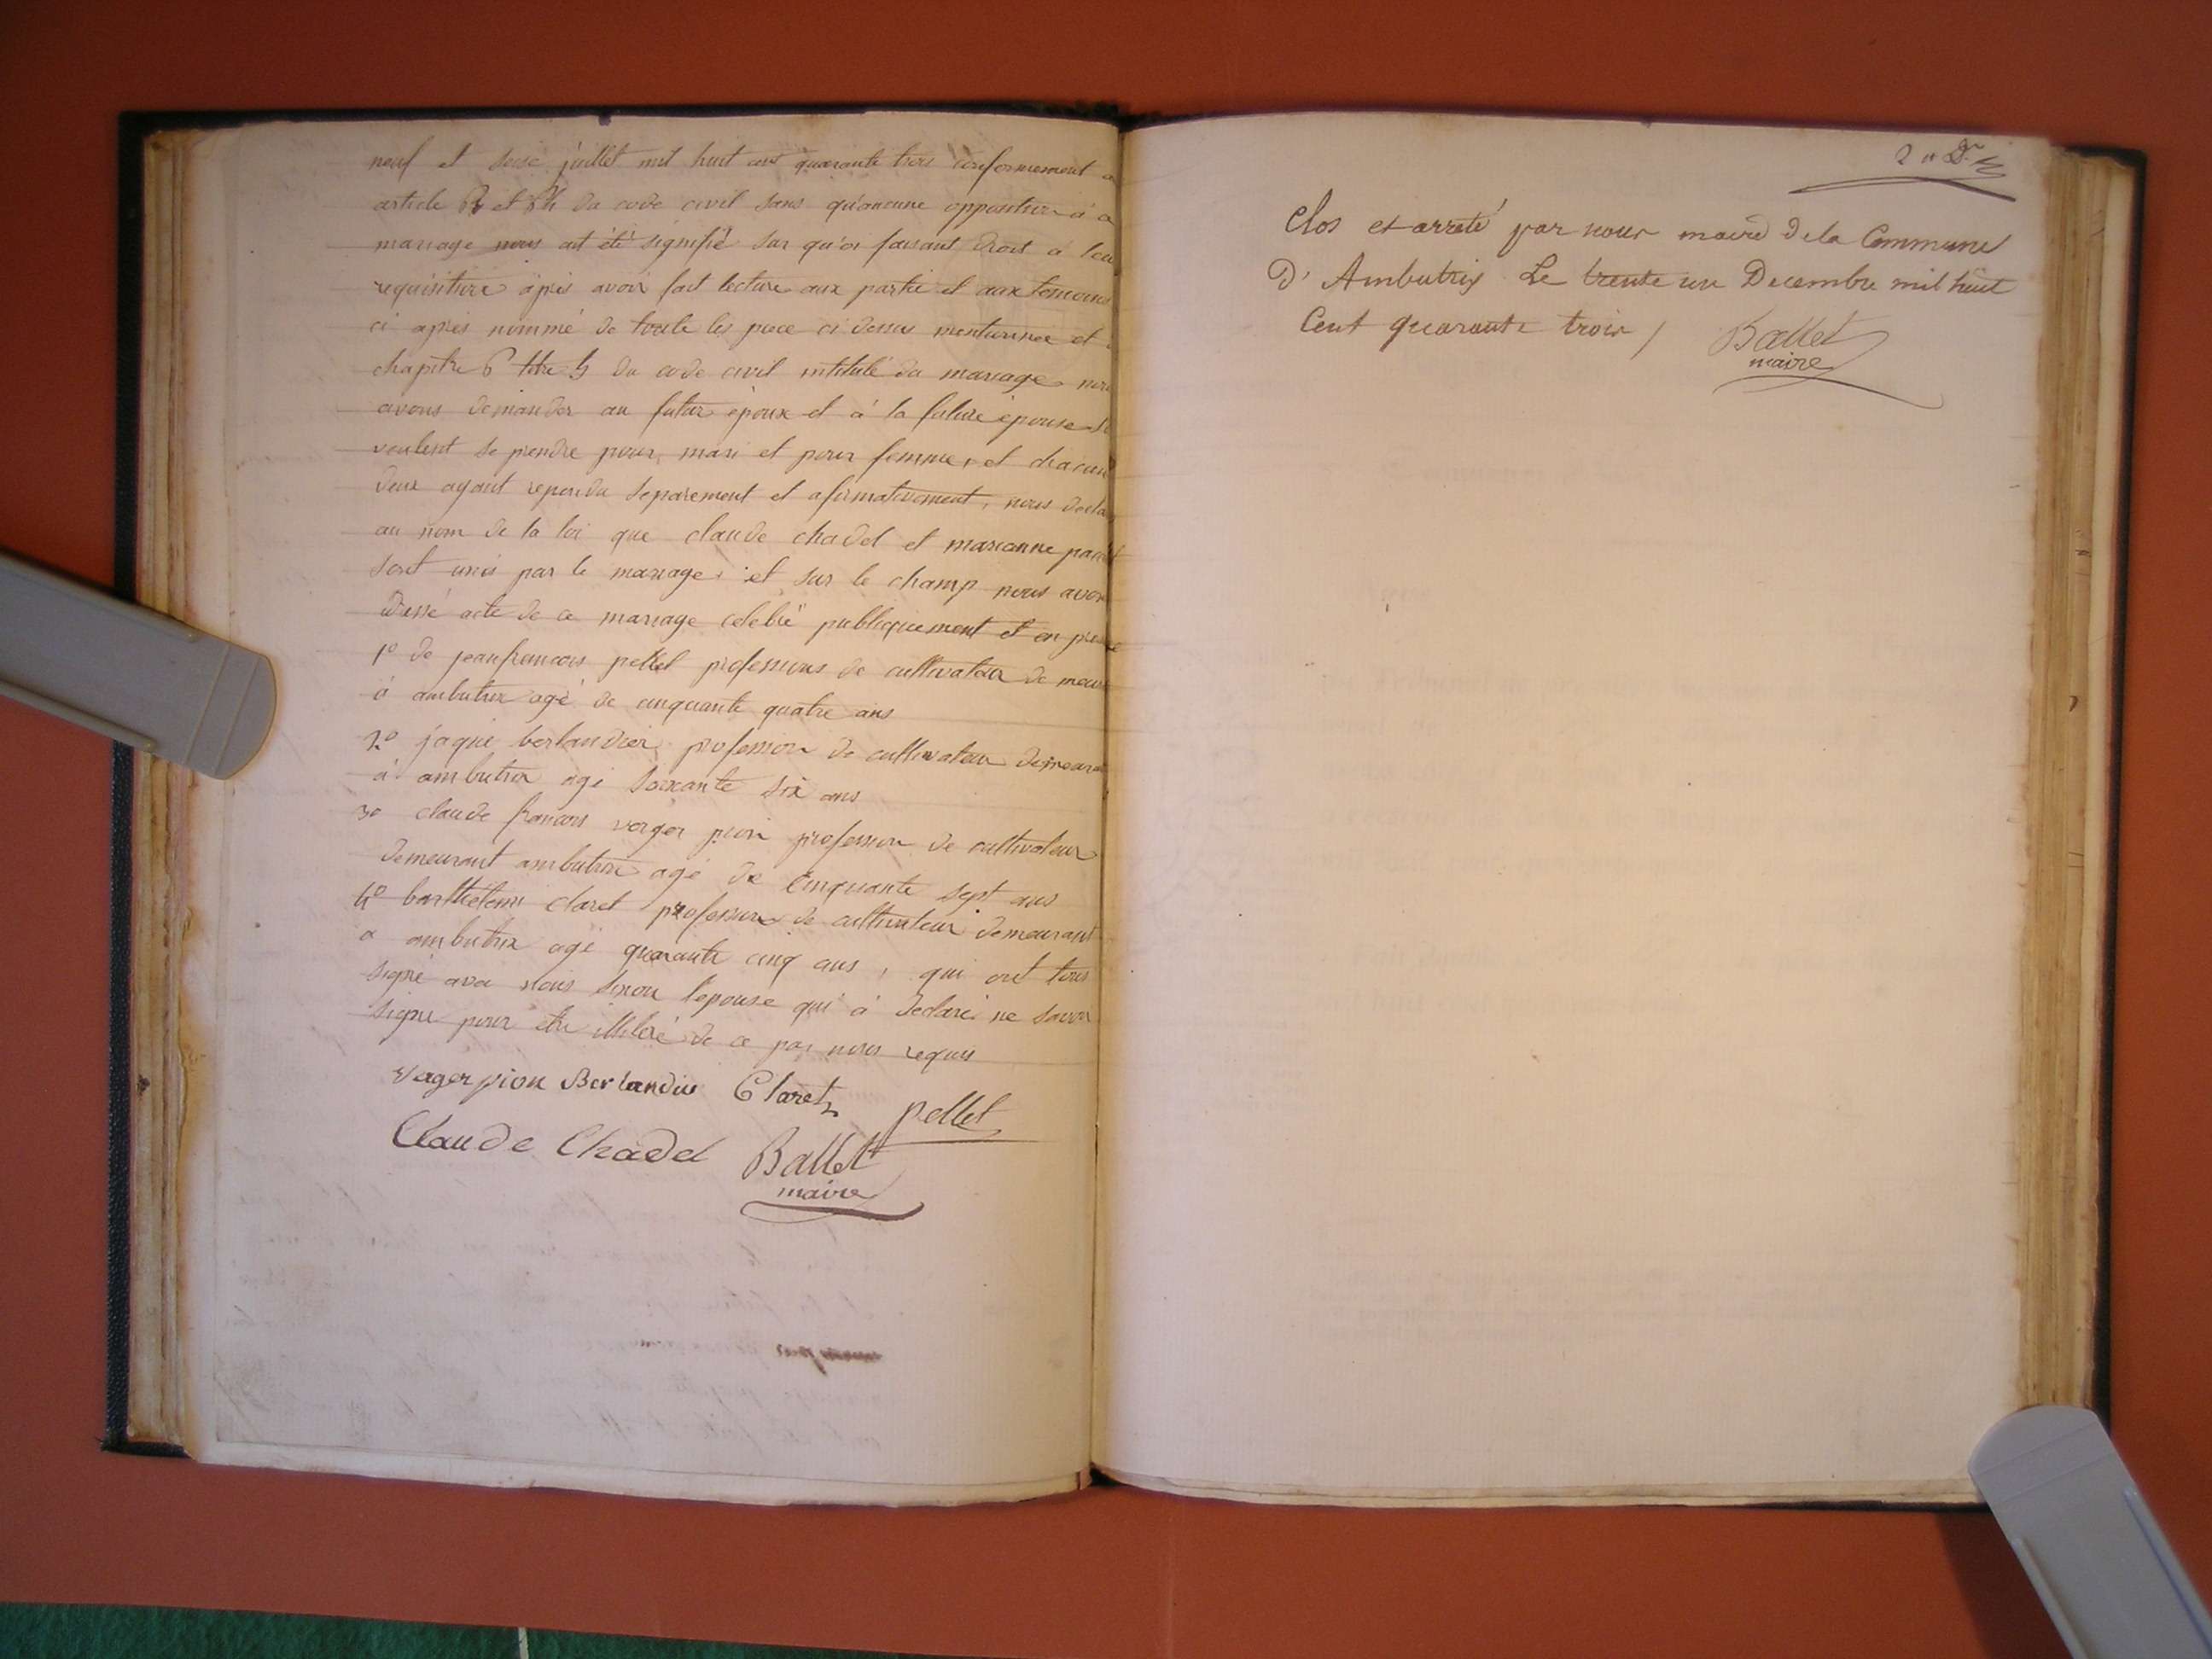 neuf et seize juillet mil huit cent quarante trois conformement a
article et du code civil sans qu'aucune opposition à a
mariage nous ait été signifié sur qu'oi faisant droit a leu
requisitione àpres avoir fait lecture aux partie et aux temoins
ci apres nommé de toute les piece ci dessus mentionnée et
chapitre 6 titre 5 du code civil intitulé du mariage nou
avons demander au futur époux et à la future épouse
veulent se prendre pour mari et pour femme, et chacun
deux ayant repondu separement et afirmativement, nous decla
au nom de la loi que claude chadel et marianne
sont unis par le mariage, et sur le champ nous avon
dressé acte de ce mariage celebré publiquement et en
1º de jeanfrancois pellet professions de cultivateur de meur
à ambutrix agé de cinquante quatre ans
2º jaque berlandier profession de cultivateur demeura
à ambutrix agé soixante six ans
3º claude francois verger pion profession de cultivateur
demeurant ambutrix agé de Cinquante sept ans
4º barthelemi claret profession de cultivateur demeurant
a ambutrix agé quarante cinq ans, qui ont tous
signé avec nous sinon l'epouse qui à declaré ne savoir
signe pour etre illiteré de ce par nous requis
Verger pion Berlandier Claret pellet
Claude Chadel Ballet
maire
2 n
Clos et arreté par nous maire de la Commune
D'Ambutrix Le trente un Decembre mil huit
Cent quarante trois / Ballet
maire